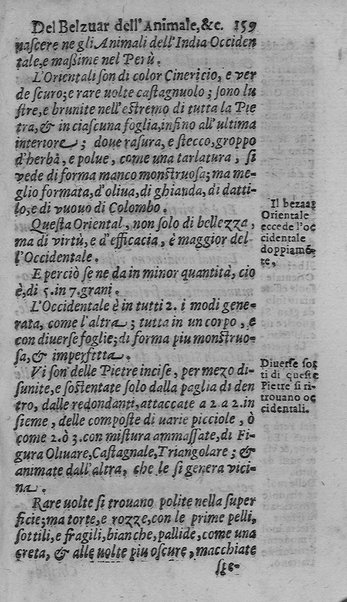 Del Belzuar dell'Animale, &c. 159
nascere ne gli Animali dell'India Occiden
tale, e maßime nel Perù.
L'Orientali son di color Cinericio, e ver
de scuro; e rare uolte castagnuolo; sono lu
stre, e brunite nell'estremo di tutta la Pie
tra, & in ciascuna foglia, infino all'ultima
interiore; doue rasura, e stecco, groppo
d'herba, e polue, come una tarlatura, si
vede di forma manco monstruosa; ma me
glio formata, d'oliua, di ghianda, di datti
lo, e di vuouo di Colombo.
Questa Oriental, non solo di bellezza,
ma di virtù, e d'efficacia, è maggior del-
l'Occidentale.
Il bezaar
Orientale
eccede l'oc
cidentale
doppiamẽ
te.
E perciò se ne da in minor quantità, cio
è, di 5. in 7. grani.
L'Occidentale è in tutti 2. i modi gene
rata, come l'altra; tutta in un corpo, e
con diuerse foglie; di forma piu monstruo
sa, & imperfetta.
Vi son delle Pietre incise, per mezo di-
sunite, e sostentate solo dalla paglia di den
tro, dalle redondanti, attaccate a 2. a 2. in
sieme, delle composte di uarie picciole, ò
come 2. ò 3. con mistura ammassate, di Fi
gura Oliuare, Castagnale, Triangolare; &
animate dall'altra, che le si genera vici-
na.
Diuerse sor
ti di queste
Pietre si ri-
trouano oc
cidentali.
Rare uolte si trouano polite nella super
ficie; ma torte, e rozze, con le prime pelli,
sottili, e fragili, bianche, pallide, come una
creta, & alle uolte piu oscure, macchiate